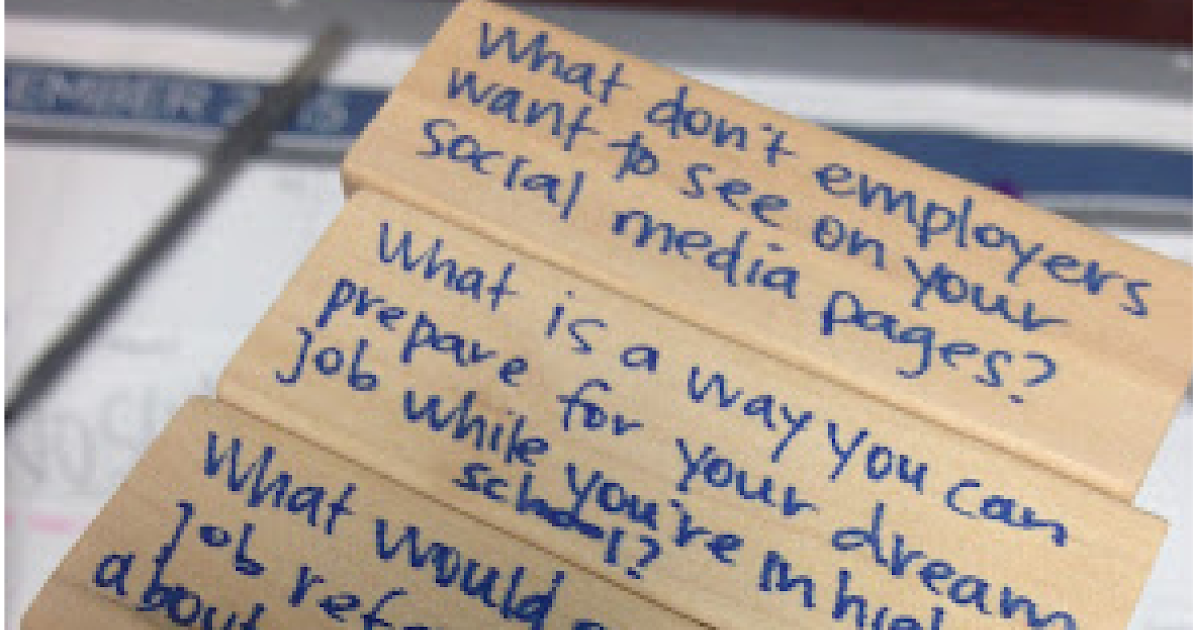 EMBER 2015
What don't employers
want to see on your
social media pages?
What is a way you can
prepare for your dream
job while you're in high
school?
What would
job
about